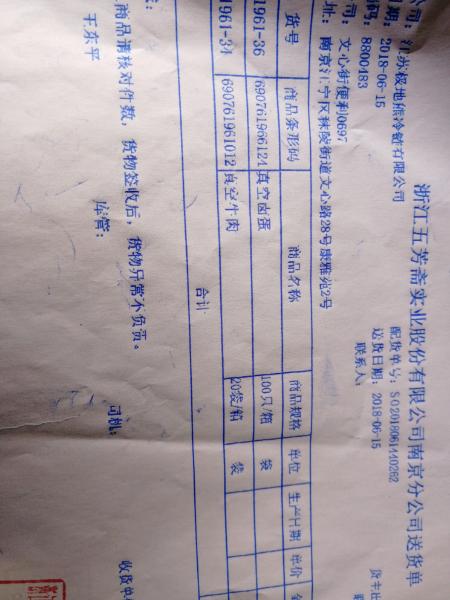 浙江五芳斋实业股份有限公司南京分公司送货单
公司：江苏极地熊冷链有限公司
配货单号：SO2018061440262
日期：2018-06-15
送货日期：2018-06-15
码：8800483
联系人：
司：文心街便利0697
址：南京江宁区秣陵街道文心路28号康雅苑2号
货号 商品条形码 商品名称 商品规格 单位 生产日期 单价
1961-36 690761966124 真空卤蛋 100只/箱 袋
1961-34 690761961012 真空牛肉 20袋/箱 袋
合计
商品请核对件数，货物签收后，货物异常不负责。
王东平 库管： 司机： 收货单